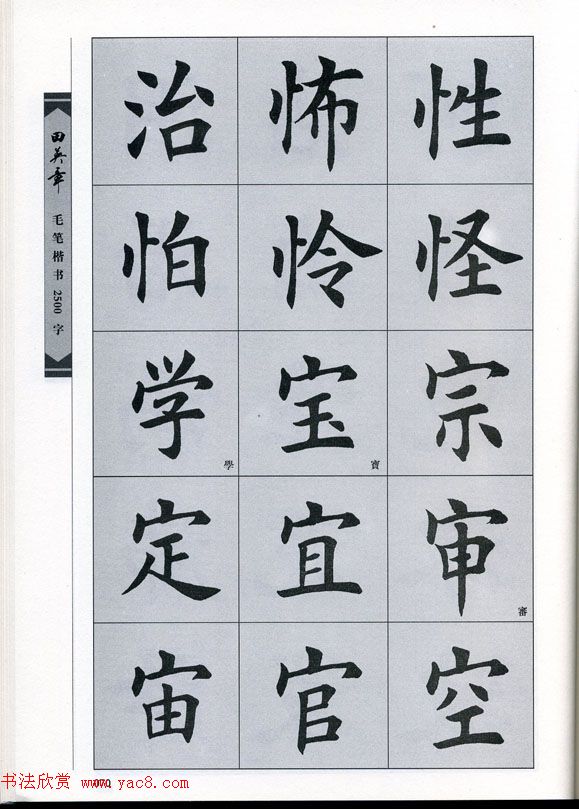 田英章 毛笔楷书 2500 字
治 怖 性
怕 怜 怪
学 宝 宗
學 寶
定 宜 审
審
宙 官 空
070
书法欣赏 www.yac8.com